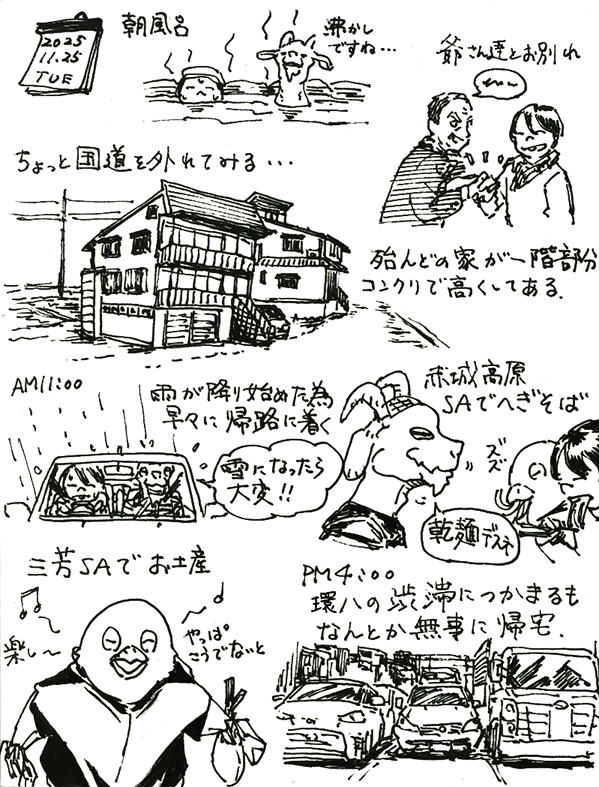 2025
11.25
TUE
朝風呂
沸かし
ですね・・・
爺さん達とお別れ
ちょっと国道を外れてみる・・・
殆んどの家が一階部分
コンクリで高くしてある.
AM11:00
雨が降り始めた為
早々に帰路に着く
雪になったら
大変!!
赤城高原
SAでへぎそば
ズズ
乾麺デスネ
三芳SAでお土産
楽し〜
やっぱ
こうでないと
PM4:00
環八の渋滞につかまるも
なんとか無事に帰宅.